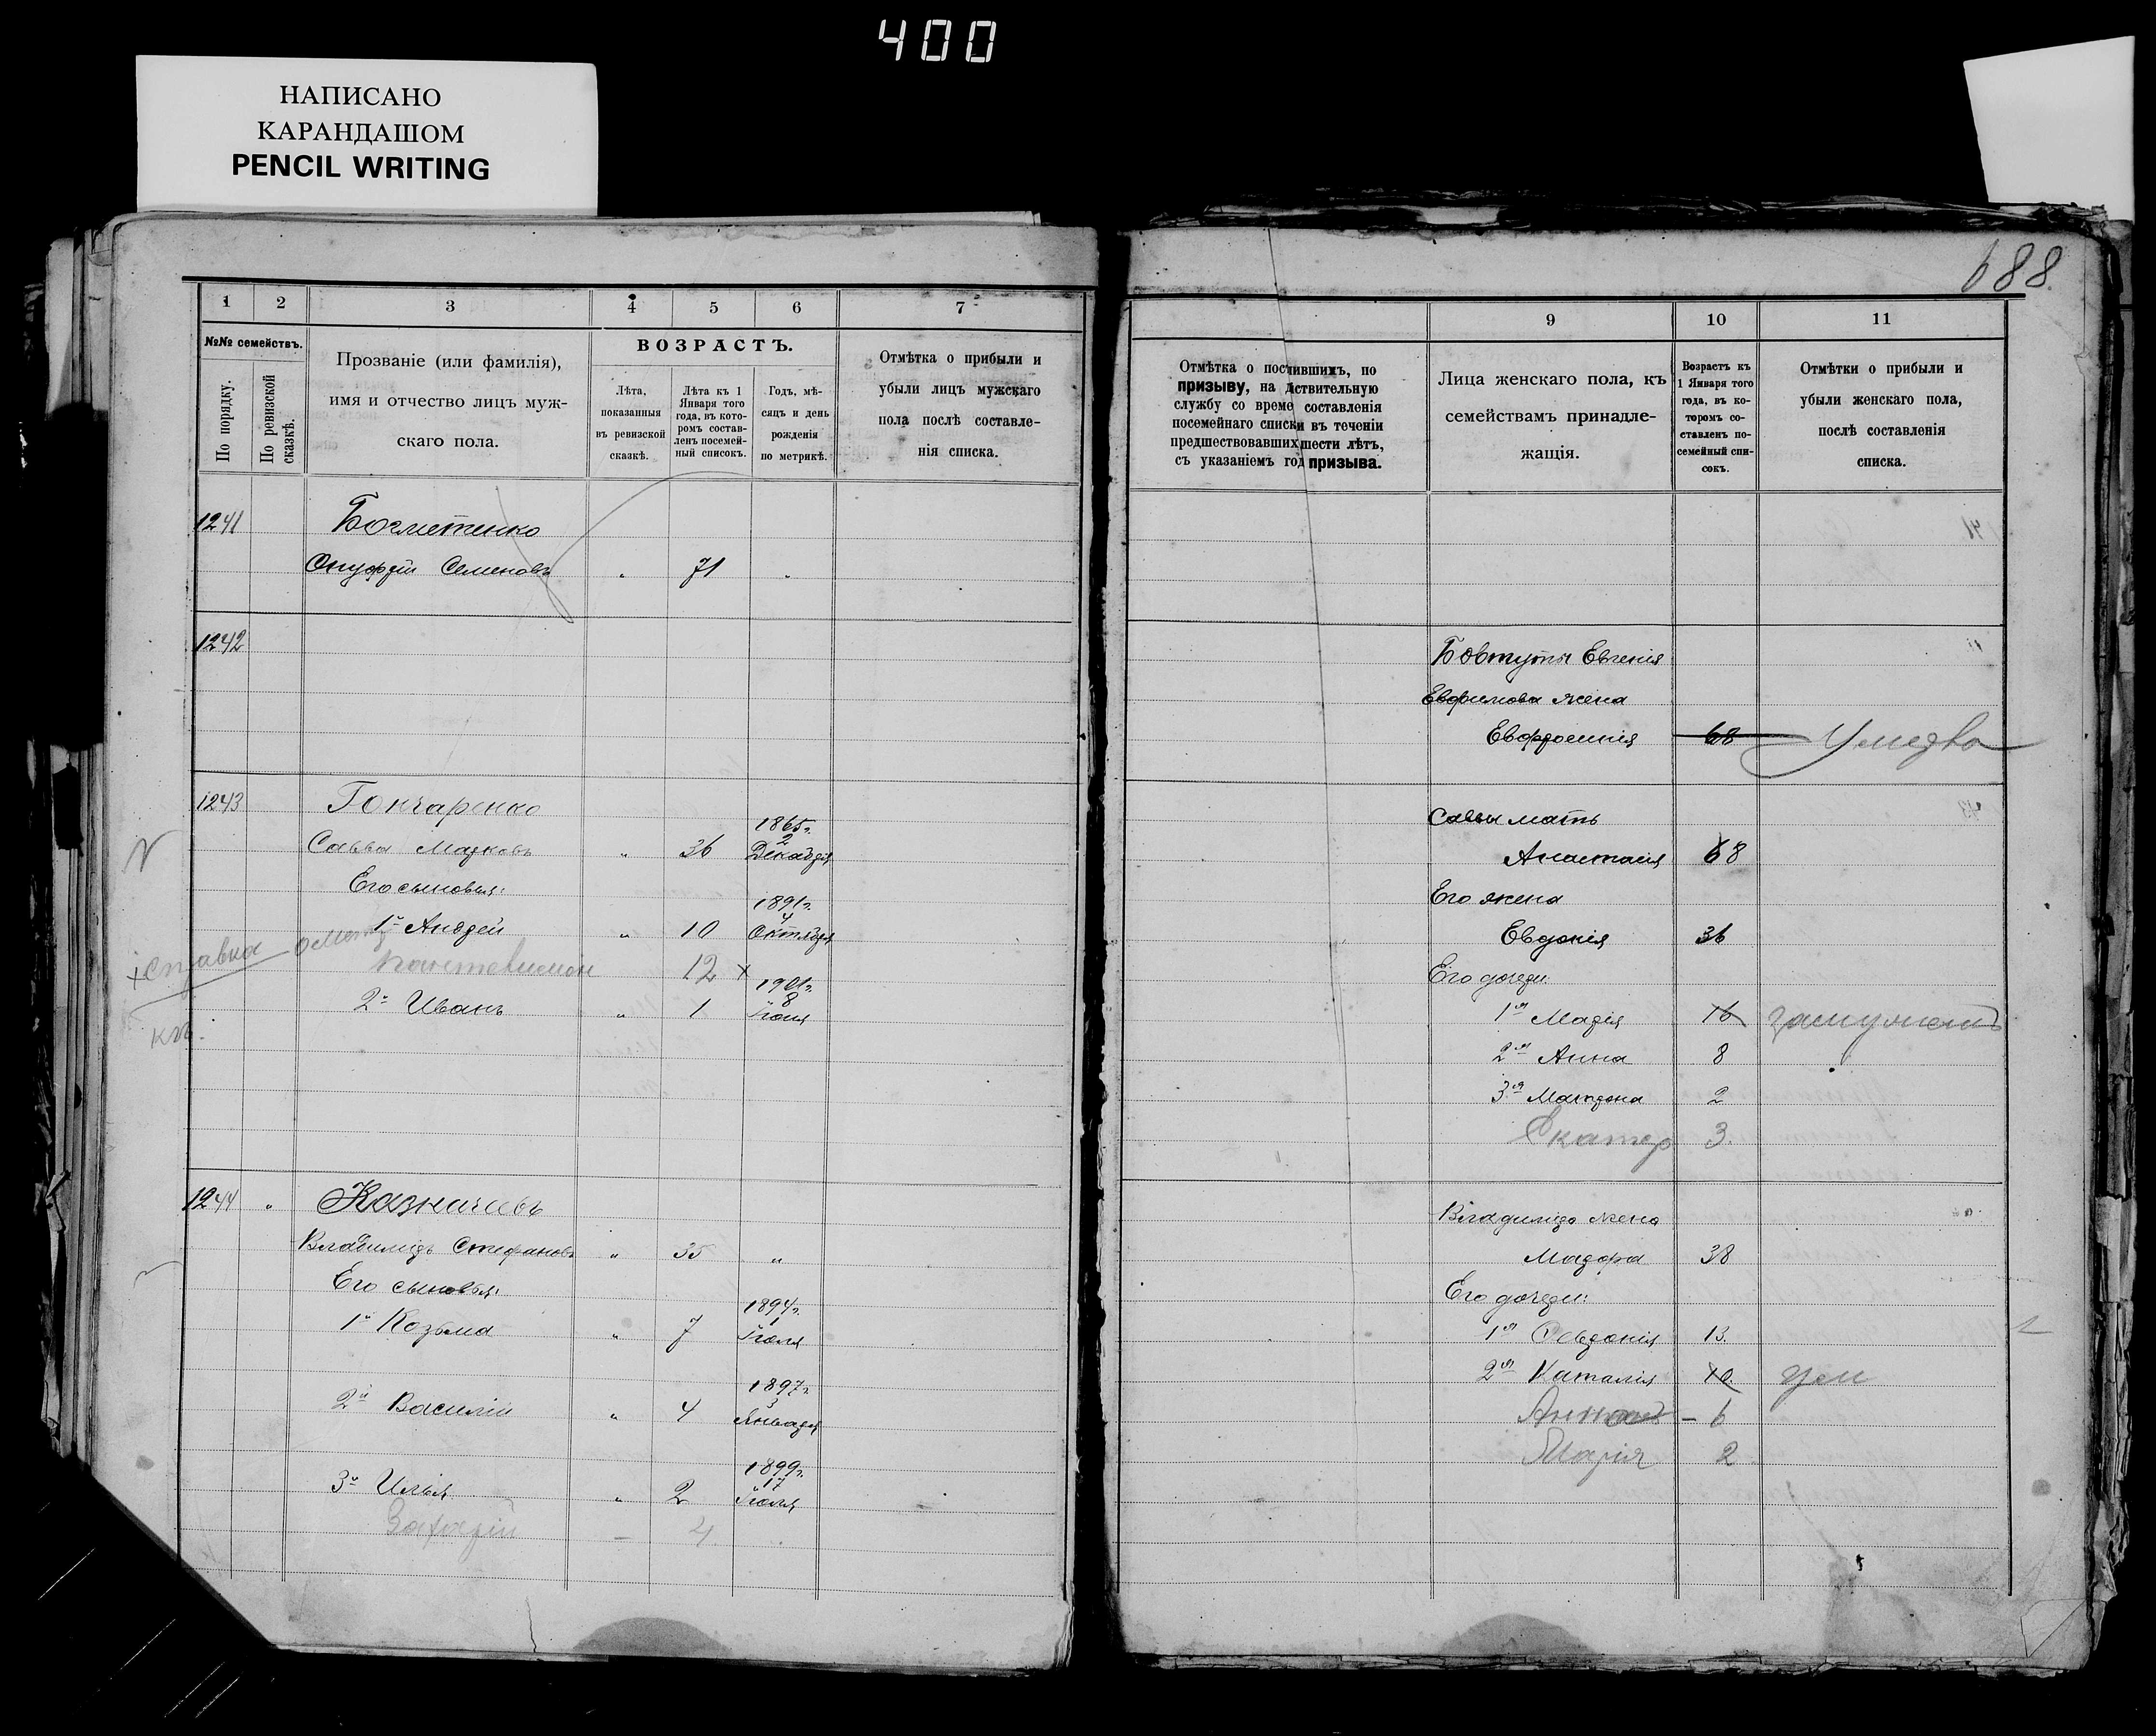 400
НАПИСАНО
КАРАНДАШОМ
PENCIL WRITING
688.
1 2 3 4 5 6 7
№№ семействъ.
По порядку.
По ревизской сказкѣ.
Прозваніе (или фамилія),
имя и отчество лицъ муж-
скаго пола.
ВОЗРАСТЪ.
Лѣта,
показанныя
въ ревизской
сказкѣ.
Лѣта къ 1
Января того
года, въ кото-
ромъ состав-
ленъ посемей-
ный списокъ.
Годъ, мѣ-
сяцъ и день
рожденія
по метрикѣ.
Отмѣтка о прибыли и
убыли лицъ мужскаго
пола послѣ составле-
нія списка.
1241
Онуфрій Семеновъ " 71 "
1242
1243 Гончаренко
1865 г.
2
Савва Марковъ " 36 Декабря
Его сыновья:
1891 г.
4
1й Андрей " 10 Октября
+ справка о
12 +
1901 г.
8
2й Иванъ " 1 Іюня
1244 " Казначеевъ
Владиміръ Стефановъ " 35 "
Его сыновья:
1894 г.
1
1й Козьма " 7 Іюля
1897 г.
3
2й Василій " 4 Января
1899 г.
17
3й Илья " 2 Іюля
Захарій — 4
9 10 11
Отмѣтка о поствившихъ, по
призыву, на дствительную
службу со време составленія
посемейнаго списки въ теченіи
предшествовавшихшести лѣтъ,
съ указаніемъ год призыва.
Лица женскаго пола, къ
семействамъ принадле-
жащія.
Возрастъ къ
1 Января того
года, въ ко-
торомъ со-
ставленъ по-
семейный спи-
сокъ.
Отмѣтки о прибыли и
убыли женскаго пола,
послѣ составленія
списка.
Евгенія
Евфимова жена
Евфросинія 68 Умерла
Саввы мать
Анастасія 68
Его жена
Евдокія 36
Его дочери:
1я Марія 16 замужемъ
2я Анна 8
3я Матрона 2
Екатер 3.
Владиміра жена
Марфа 38
Его дочери:
1я Евдокія 13.
2я Наталія 10. ум
— 6
Марія 2